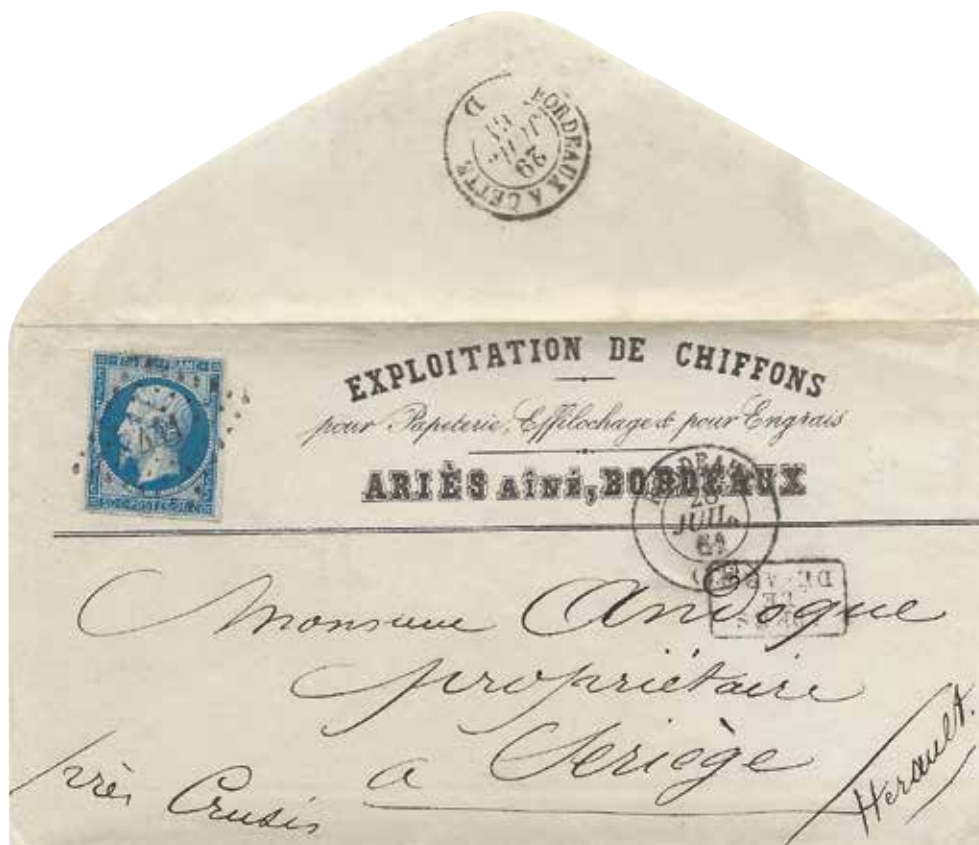 BORDEAUX A CETTE
D
29
JUIL
61
EXPLOITATION DE CHIFFONS
pour Papeterie, Effilochage & pour Engrais
ARIÈS AÎNÉ, BORDEAUX
28
JUIL.
61
APRÈS
LE
DÉPART
Monsieur Andoque
propriétaire
a Seriège
près Crusis
Herault.